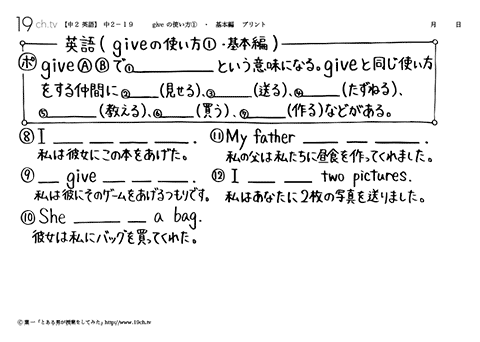 19ch.tv 【中2 英語】 中2-19 give の使い方① ・ 基本編 プリント 月 日
英語(giveの使い方①・基本編)
ポ give Ⓐ Ⓑ で①________という意味になる。giveと同じ使い方
をする仲間に②____(見せる)、③____(送る)、④____(たずねる)、
⑤____(教える)、⑥____(買う)、⑦____(作る)などがある。
⑧ I ____ ____ ____ ____.
私は彼女にこの本をあげた。
⑨ __ give ____ ____ ____.
私は彼にそのゲームをあげるつもりです。
⑩ She ____ ____ a bag.
彼女は私にバッグを買ってくれた。
⑪ My father ____ ____ ____.
私の父は私たちに昼食を作ってくれました。
⑫ I ____ ____ two pictures.
私はあなたに2枚の写真を送りました。
Ⓒ 葉一「とある男が授業をしてみた」http://www.19ch.tv